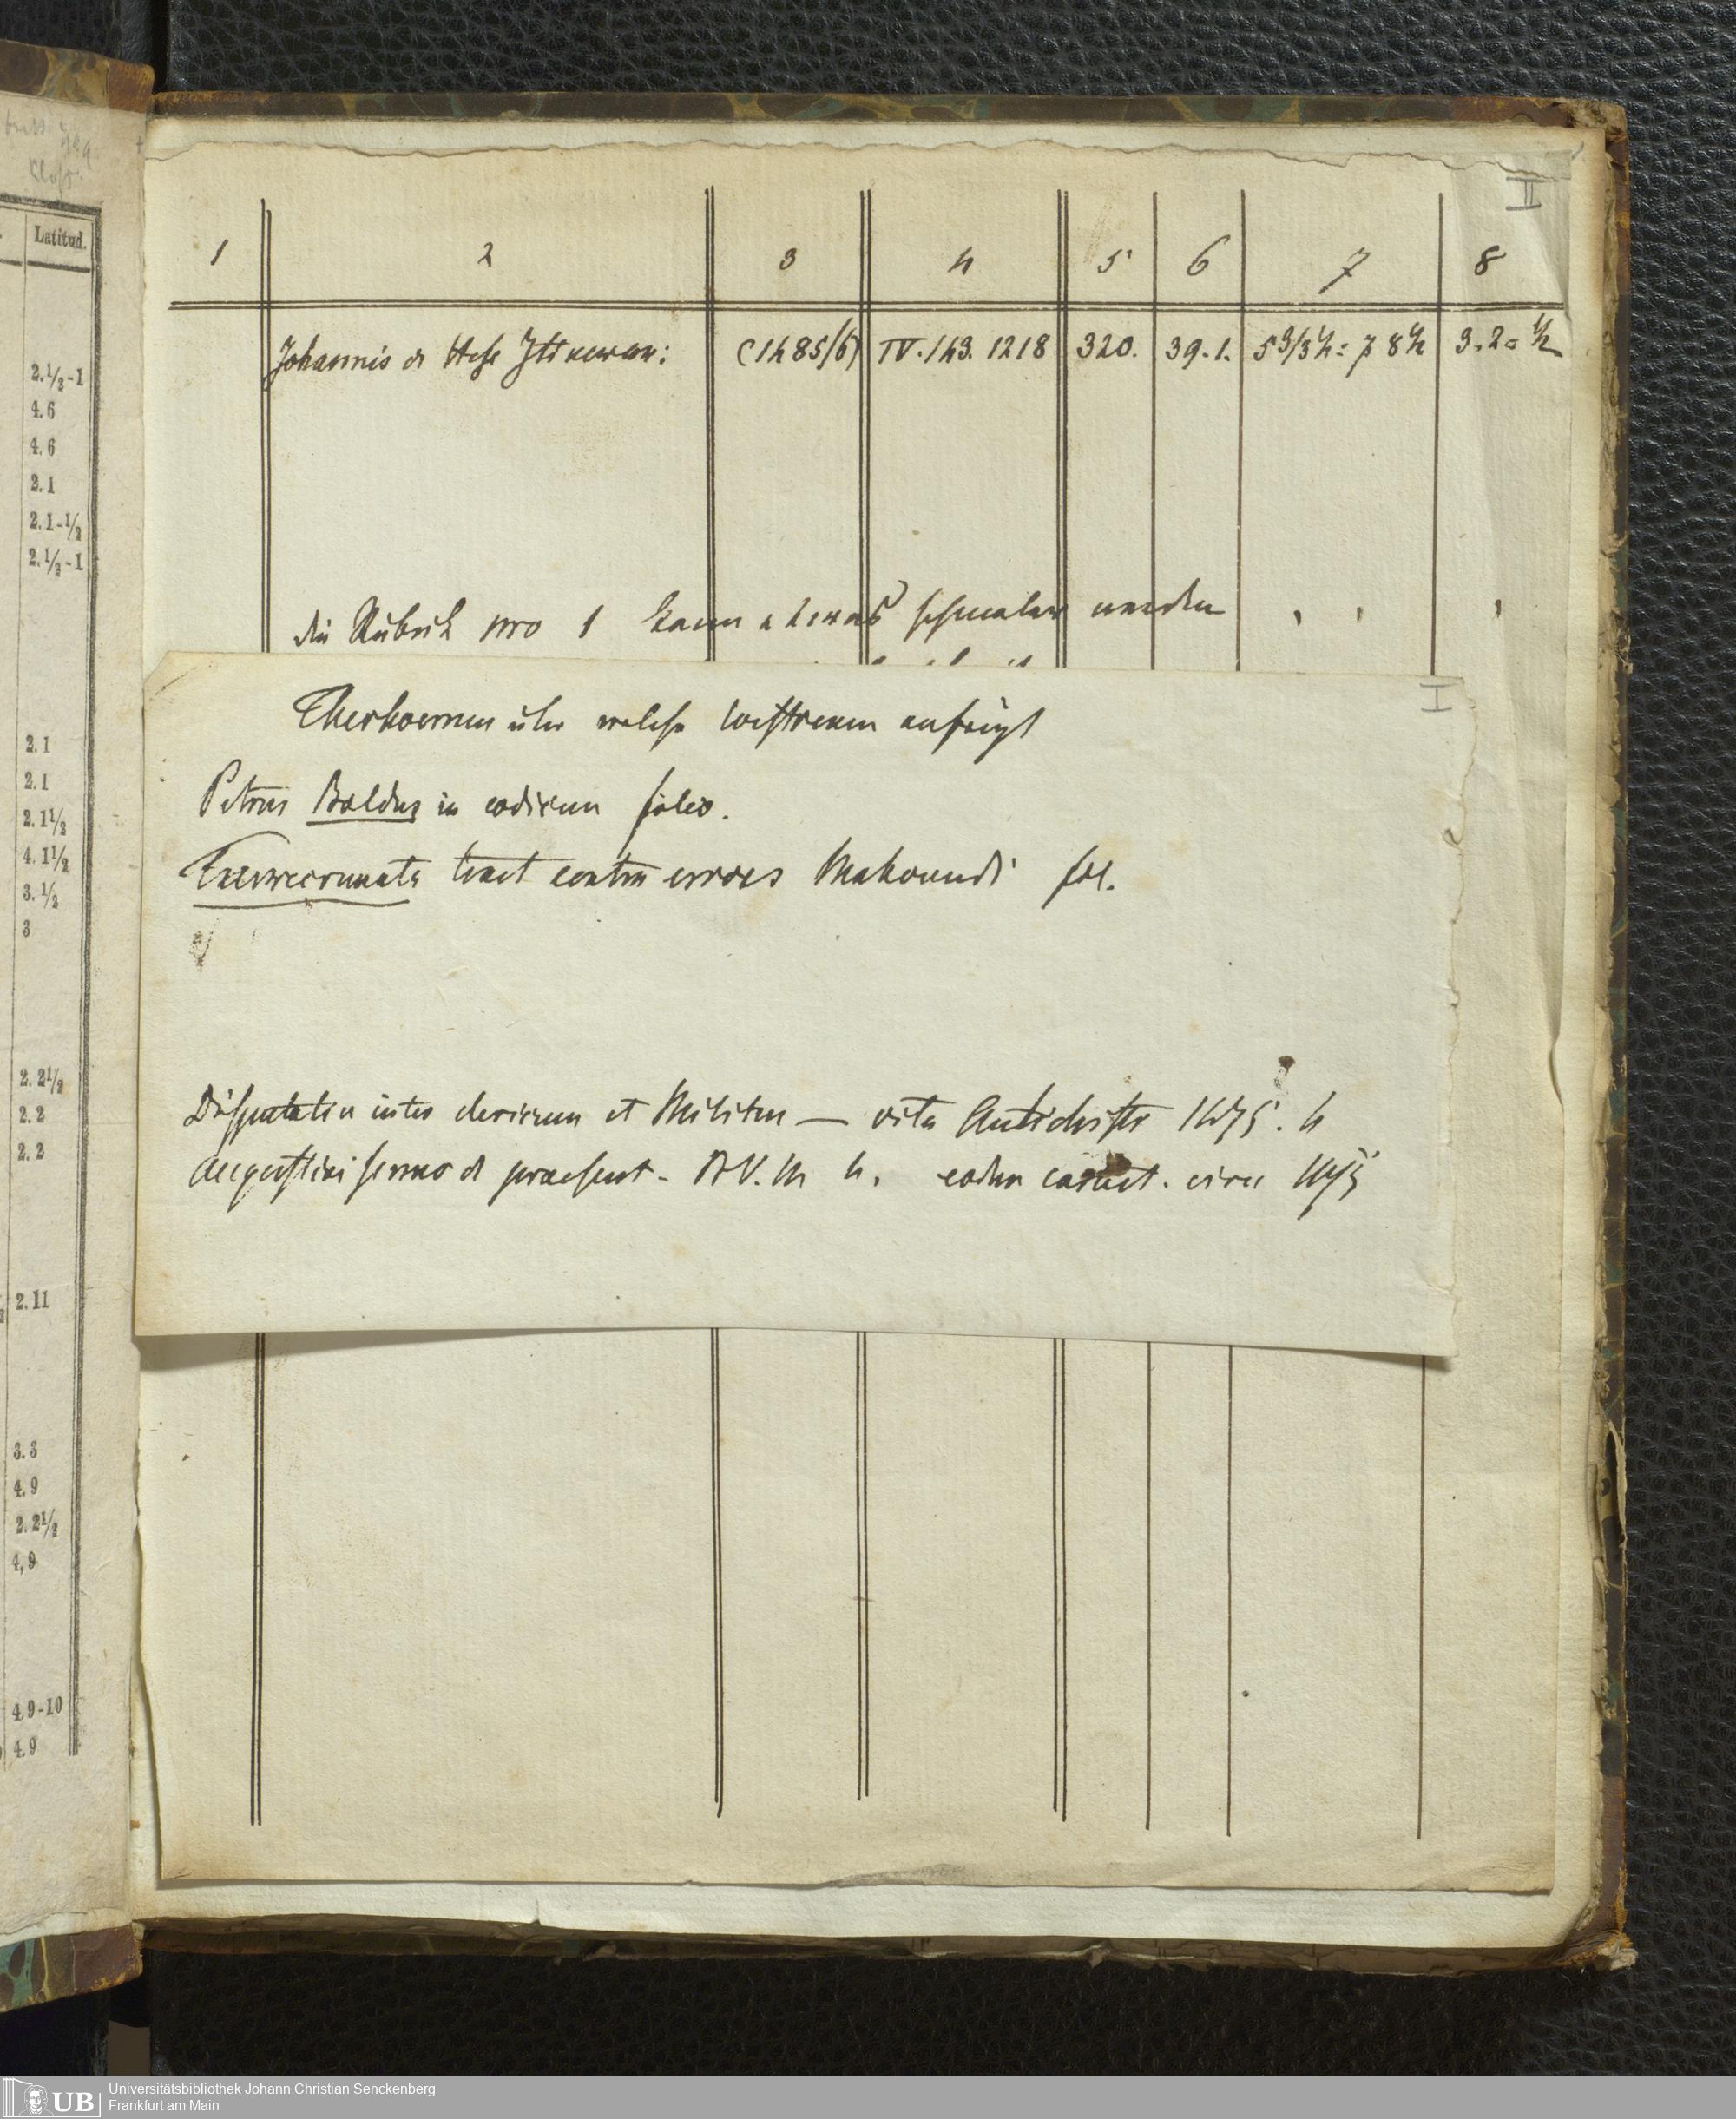 Klosr.
Latitud.
2.1/2-1
4.6
4.6
2.1
2.1-1/2
2.1/2-1
2.1
2.1
2.1 1/2
4.1 1/2
3.1/2
3
2.2 1/2
2.2
2.2
2.11
3.3
4.9
2.2 1/2
4,9
4,9-10
4.9
II
1 2 3 4 5 6 7 8
Johannis de Hese Itinerar: (1485/6) IV.143.1218 320. 39.1. 3.2=1/2
die Rubrik pro 1 kann etwas schmaler werden
I
Therhoernen über welche
Petrus Baldus in codicum folio.
tract contra errores Mahoundi fol.
Disputatio inter clericum et Militem — vita Antichristi 1475. 4
Augustini sermo de praesent. B.V.M 4. eodem caract. circa 1475
UB Universitätsbibliothek Johann Christian Senckenberg
Frankfurt am Main